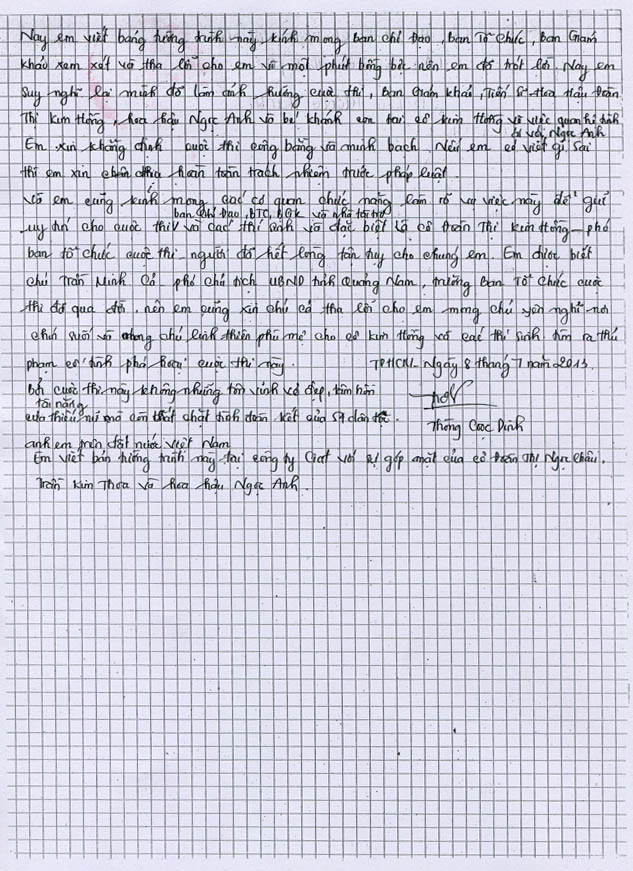 Nay em viết bảng tường trình này, kính mong ban chỉ Đạo, Ban Tổ Chức, Ban Giám
khảo xem xét và tha lỗi cho em vì một phút bồng bột nên em đã trót lỡ. Nay em
suy nghĩ lại mình đã làm ảnh hưởng cuộc thi, Ban Giám khảo, Tiến Sĩ Hoa Hậu Đoàn
Thị Kim Hồng, hoa hậu Ngọc Anh và bé Khánh con trai cô Kim Hồng về việc quan hệ tình
với Ngọc Anh
Em xin khẳng định cuộc thi công bằng và minh bạch. Nếu em có viết gì sai
thì em xin chịu hoàn toàn trách nhiệm trước pháp luật.
Và em cũng kính mong các cơ quan chức năng làm rõ vụ việc này để gửi
ban chỉ Đạo, BTC, BGK và nhà tài trợ
uy tín cho cuộc thi và các thí sinh và đặc biệt là cô Đoàn Thị Kim Hồng - phó
ban tổ chức cuộc thi người đã hết lòng tận tụy cho chúng em. Em được biết
chú Trần Minh Cả - phó chủ tịch UBND tỉnh Quảng Nam, trưởng Ban Tổ Chức cuộc
thi đã qua đời, nên em cũng xin chú Cả tha lỗi cho em mong chú yên nghỉ nơi
chín suối và mong chú linh thiên phù mẹ cho cô Kim Hồng và các thí sinh tìm ra thủ
phạm cố tình phá hoại cuộc thi này.
TPHCM - Ngày 8 tháng 7 năm 2013
Bởi cuộc thi này không những tôn vinh vẻ đẹp, tâm hồn
tài năng
của thiếu nữ mà còn thắt chặt tình đoàn kết của 54 dân tộc
Thông Cọc Dính
anh em trên đất nước Việt Nam
Em viết bản tường trình này tại công ty Ciat với sự góp mặt của cô Đoàn Thị Ngọc Châu,
Trần Kim Thoa và hoa hậu Ngọc Anh.